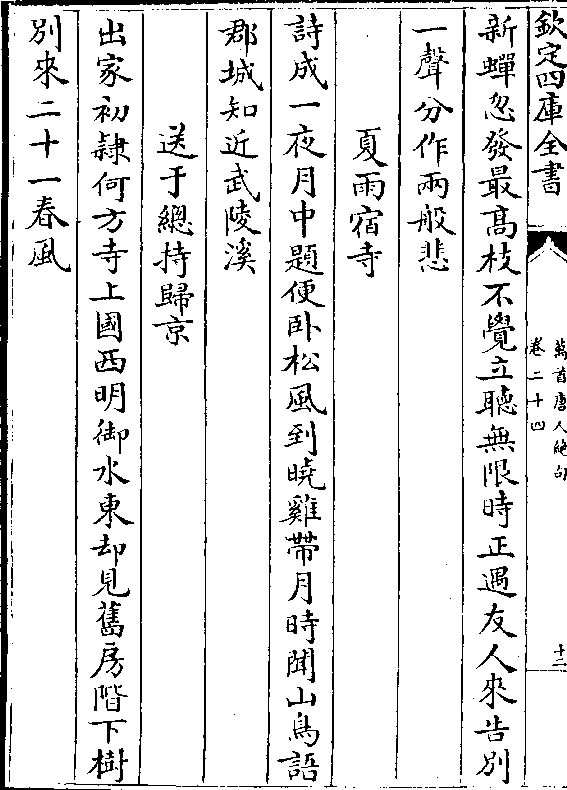 欽定四庫全書
萬首唐人絶句
卷二十四
十二
新蟬忽發最髙枝不覺立聽無限時正遇友人來告别
一聲分作兩般悲
夏雨宿寺
詩成一夜月中題便卧松風到曉雞帶月時聞山鳥語
郡城知近武陵溪
送于總持歸京
出家初隷何方寺上國西明御水東却見舊房階下樹
别來二十一春風